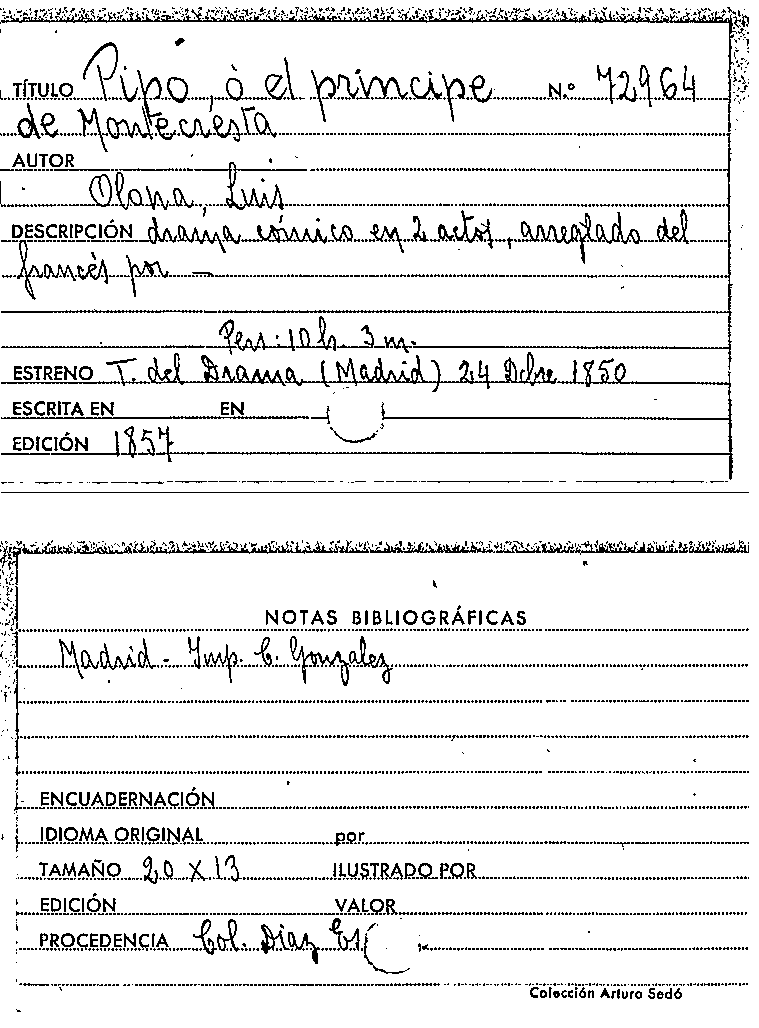 TÍTULO Pipo, ó el príncipe N.º 72964
de Montecresta
AUTOR
Olona, Luis
DESCRIPCIÓN drama cómico en 2 actos, arreglado del
francés por —
Pers: 10 h. 3 m.
ESTRENO T. del Drama (Madrid) 24 Dbre 1850
ESCRITA EN EN
EDICIÓN 1857
NOTAS BIBLIOGRÁFICAS
Madrid - Imp. C. Gonzalez
ENCUADERNACIÓN
IDIOMA ORIGINAL por
TAMAÑO 20 X 13 ILUSTRADO POR
EDICIÓN VALOR
PROCEDENCIA Col. Díaz
Colección Arturo Sedó